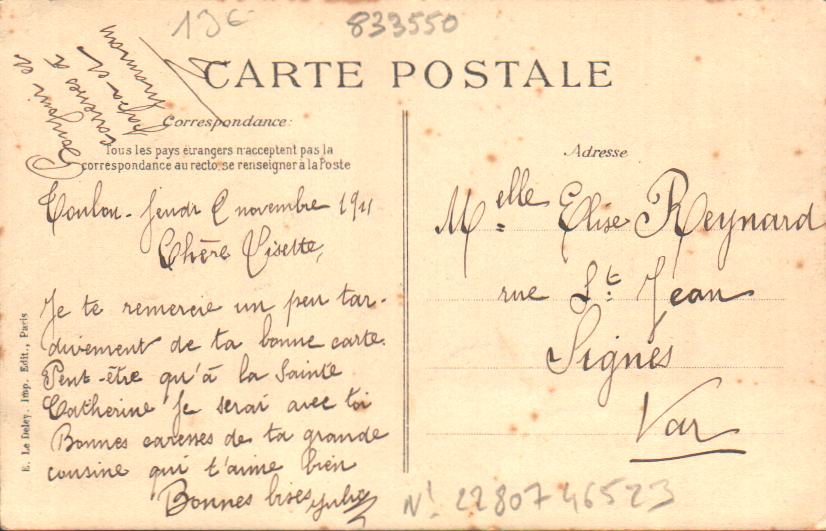 13€
833550
CARTE POSTALE
Correspondance:
Tous les pays étrangers n'acceptent pas la
correspondance au recto, se renseigner à la Poste
Bonjour et
caresses à
papa et
maman
Toulon - Jeudi 2 novembre 1911
Chère Lisette,
Je te remercie un peu tar-
divement de ta bonne carte.
Peut-être qu'à la Sainte
Catherine je serai avec toi
Bonnes caresses de ta grande
cousine qui t'aime bien
Bonnes bises
Adresse
Melle Elise Reynard
rue St Jean
Signes
Var
E. Le Deley, Imp. Edit., Paris
N! 2280746523